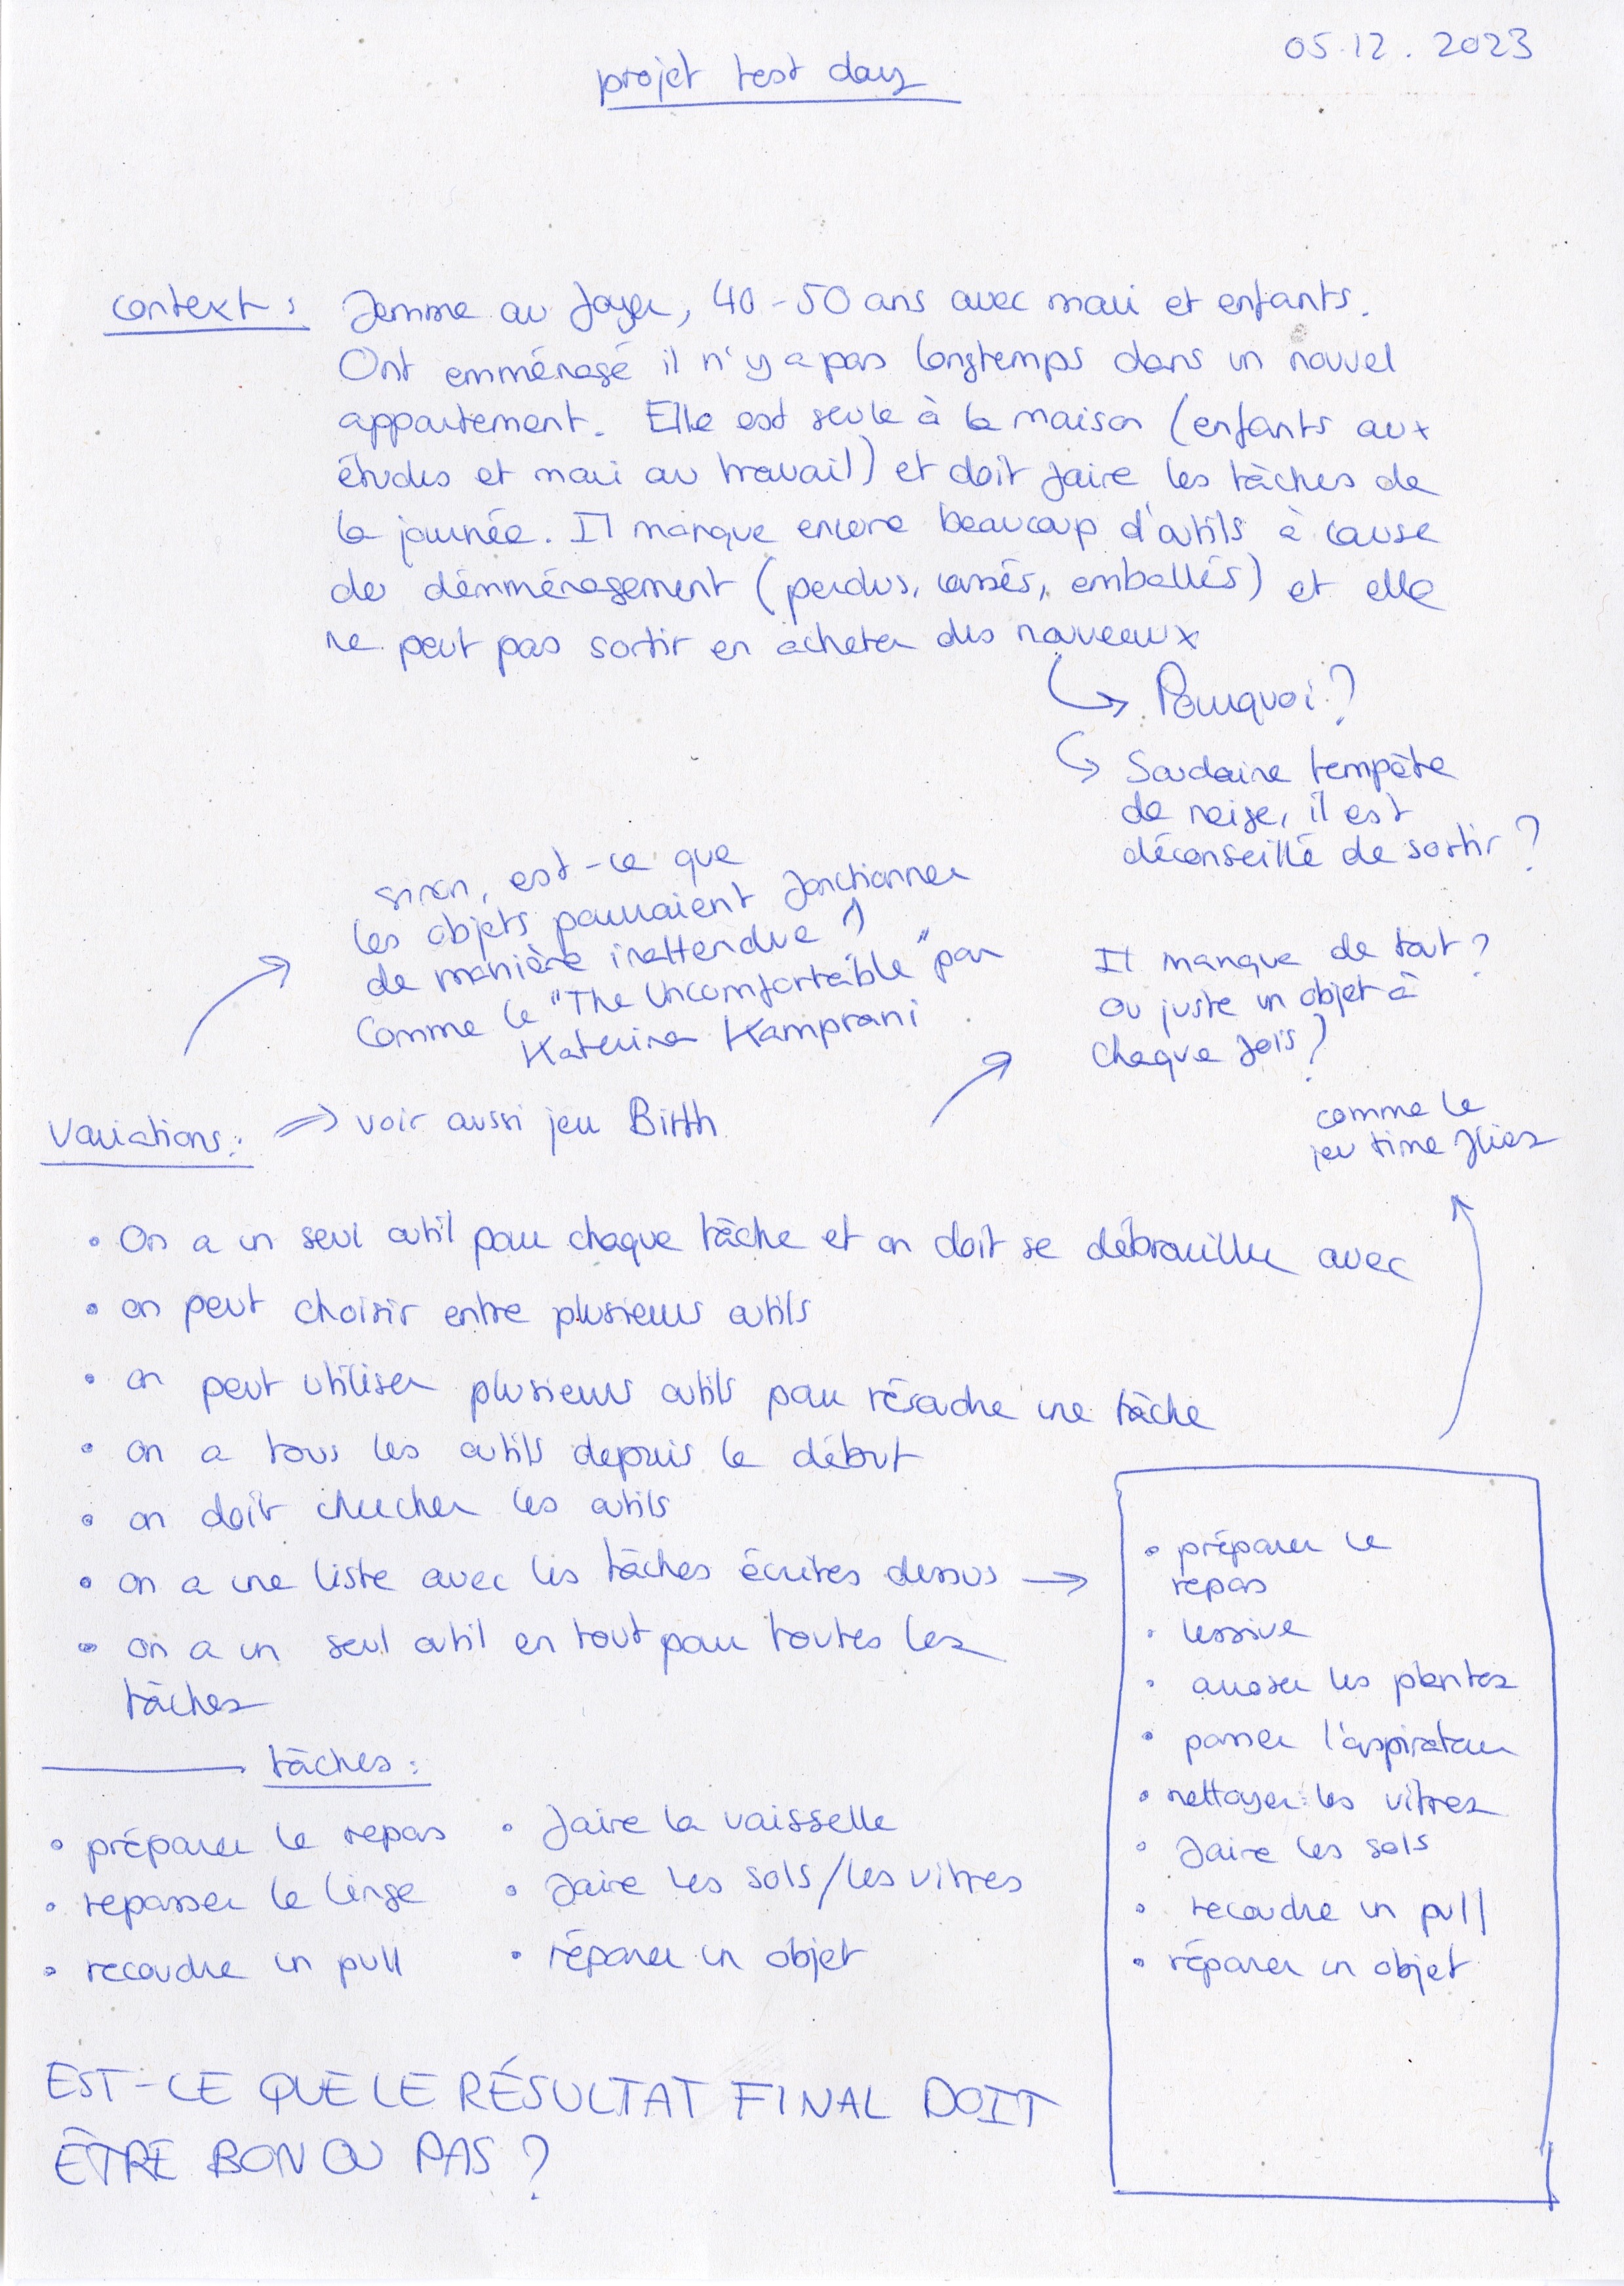 05.12.2023
projet test day
context : femme au foyer, 40-50 ans avec mari et enfants.
Ont emménagé il n'y a pas longtemps dans un nouvel
appartement. Elle est seule à la maison (enfants aux
études et mari au travail) et doit faire les tâches de
la journée. Il manque encore beaucoup d'outils à cause
du démménagement (perdus, cassés, emballés) et elle
ne peut pas sortir en acheter des nouveaux
↳ Pourquoi ?
↳ Soudaine tempête
de neige, il est
déconseillé de sortir ?
sinon, est-ce que
les objets pourraient fonctionner
de manière inattendue ?
Comme le "The Uncomfortable" par
Katerina Kamprani
Il manque de tout ?
Ou juste un objet à
chaque fois ?
comme le
jeu time flies
Variations : => voir aussi jeu Birth
• On a un seul outil pour chaque tâche et on doit se débrouiller avec
• on peut choisir entre plusieurs outils
• on peut utiliser plusieurs outils pour résoudre une tâche
• on a tous les outils depuis le début
• on doit chercher les outils
• on a une liste avec les tâches écrites dessus →
• on a un seul outil en tout pour toutes les
tâches
• préparer le
repas
• lessive
• arroser les plantes
• passer l'aspirateur
• nettoyer les vitres
• faire les sols
• recoudre un pull
• réparer un objet
tâches :
• préparer le repas
• repasser le linge
• recoudre un pull
• faire la vaisselle
• faire les sols/les vitres
• réparer un objet
EST-CE QUE LE RÉSULTAT FINAL DOIT
ÊTRE BON OU PAS ?